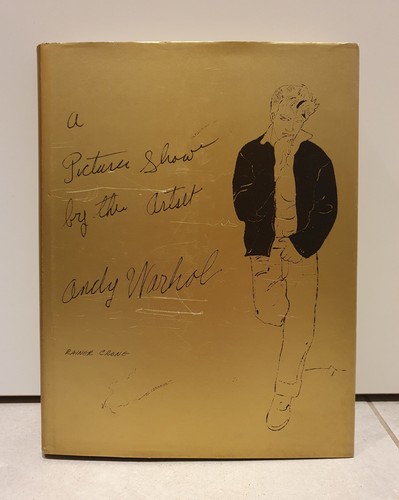 a
Picture Show
by the artist
Andy Warhol
RAINER CRONE